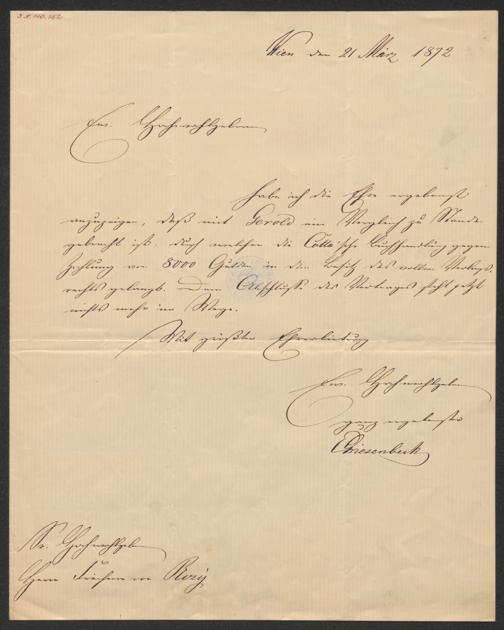 Wien den 21 März 1872
Euer Hochwohlgeboren
habe ich die Ehre ergebenst
anzuzeigen, daß mit Gerold ein Vergleich zu Stande
gebracht ist, durch welchen die Cotta'sche Buchhandlung gegen
Zahlung von 8000 Gulden in den Besitz des vollen Verlags-
rechts gelangt. Dem Abschluß des Vertrages steht jetzt
nichts mehr im Wege.
Mit größter Ehrerbietung
Euer Hochwohlgeboren
ganz ergebenster
Sr. Hochwohlgeboren
Herrn Freiherrn von